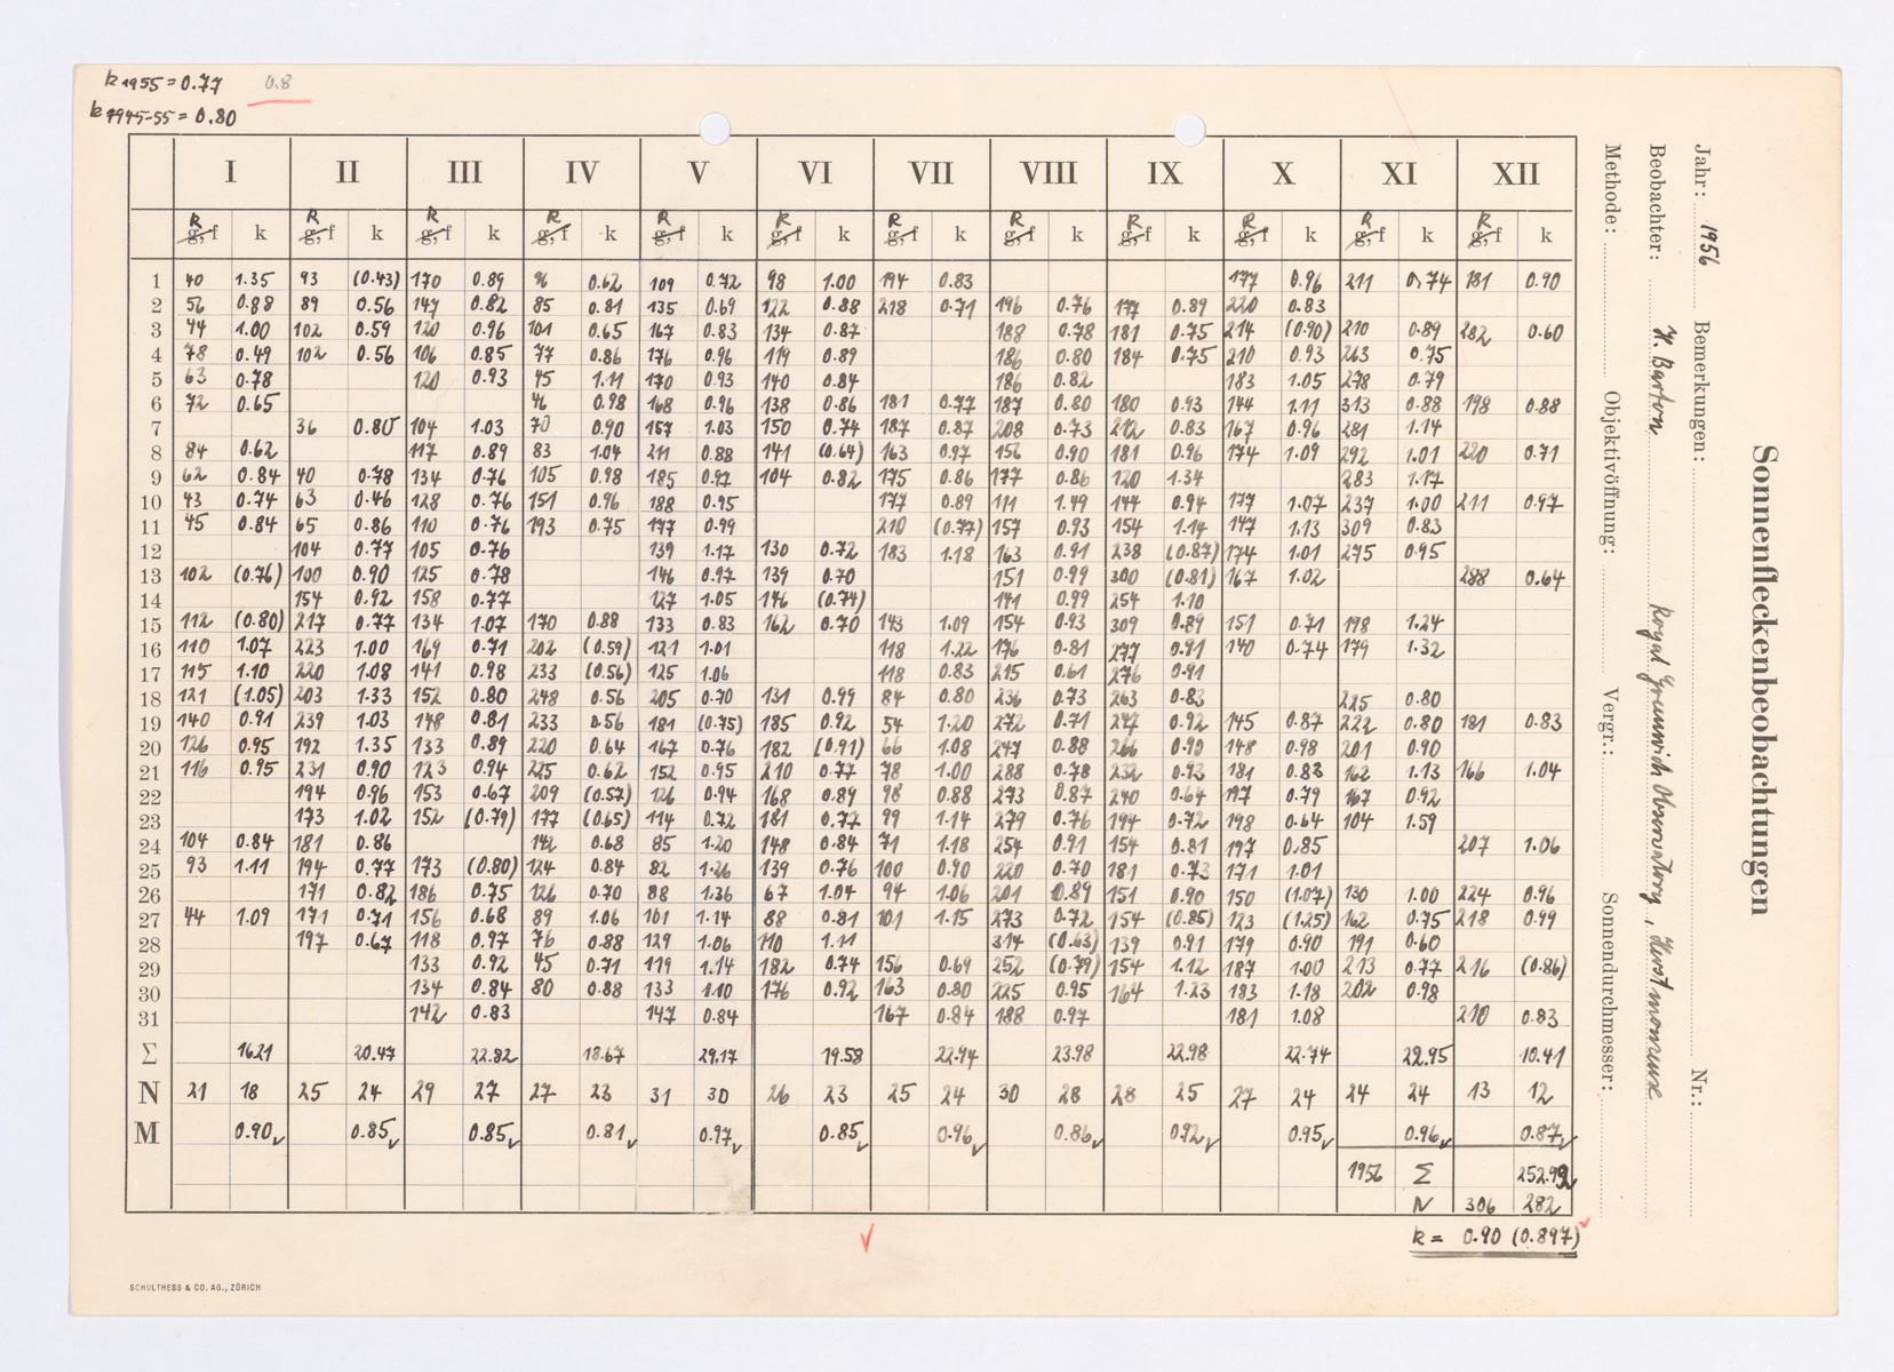 k 1955 = 0.77 0.8
k 1945-55 = 0.80
I II III IV V VI VII VIII IX X XI XII
R R R R R R R R R R R R
g, f k g, f k g, f k g, f k g, f k g, f k g, f k g, f k g, f k g, f k g, f k g, f k
1 40 1.35 93 (0.43) 170 0.89 96 0.62 109 0.72 98 1.00 194 0.83 177 0.96 211 0.74 181 0.90
2 56 0.88 89 0.56 147 0.82 85 0.81 135 0.69 122 0.88 218 0.71 196 0.76 177 0.89 220 0.83
3 44 1.00 102 0.59 120 0.96 101 0.65 167 0.83 134 0.87 188 0.78 181 0.75 214 (0.90) 210 0.89 282 0.60
4 78 0.49 102 0.56 106 0.85 77 0.86 176 0.96 119 0.89 186 0.80 184 0.75 210 0.93 263 0.75
5 63 0.78 120 0.93 45 1.11 170 0.93 140 0.84 186 0.82 183 1.05 278 0.79
6 72 0.65 46 0.98 168 0.96 138 0.86 181 0.77 187 0.80 180 0.93 144 1.11 313 0.88 198 0.88
7 36 0.80 104 1.03 70 0.90 157 1.03 150 0.74 187 0.87 208 0.73 212 0.83 167 0.96 281 1.14
8 84 0.62 117 0.89 83 1.04 211 0.88 141 (0.64) 163 0.97 156 0.90 181 0.96 174 1.09 292 1.01 220 0.71
9 62 0.84 40 0.78 134 0.76 105 0.98 185 0.97 104 0.82 175 0.86 177 0.86 120 1.34 283 1.17
10 43 0.74 63 0.46 128 0.76 151 0.96 188 0.95 177 0.89 111 1.49 144 0.94 177 1.07 237 1.00 211 0.97
11 45 0.84 65 0.86 110 0.76 193 0.75 177 0.99 210 (0.77) 157 0.93 154 1.14 147 1.13 309 0.83
12 104 0.77 105 0.76 139 1.17 130 0.72 183 1.18 163 0.91 238 (0.87) 174 1.01 275 0.95
13 102 (0.76) 100 0.90 125 0.78 146 0.97 139 0.70 151 0.99 300 (0.81) 167 1.02 288 0.64
14 154 0.92 158 0.77 127 1.05 146 (0.74) 141 0.99 254 1.10
15 112 (0.80) 217 0.77 134 1.07 170 0.88 133 0.83 162 0.70 143 1.09 154 0.93 309 0.89 151 0.71 198 1.24
16 110 1.07 223 1.00 169 0.71 202 (0.59) 121 1.01 118 1.22 176 0.81 277 0.91 140 0.74 179 1.32
17 115 1.10 220 1.08 141 0.98 233 (0.56) 125 1.06 118 0.83 215 0.61 276 0.91
18 121 (1.05) 203 1.33 152 0.80 248 0.56 205 0.70 131 0.99 84 0.80 236 0.73 263 0.83 225 0.80
19 140 0.91 239 1.03 148 0.81 233 0.56 181 (0.75) 185 0.92 54 1.20 272 0.71 247 0.92 145 0.87 222 0.80 181 0.83
20 126 0.95 192 1.35 133 0.89 220 0.64 167 0.76 182 (0.91) 66 1.08 247 0.88 266 0.90 148 0.98 201 0.90
21 116 0.95 231 0.90 123 0.94 225 0.62 152 0.95 210 0.77 78 1.00 288 0.78 232 0.93 181 0.83 162 1.13 166 1.04
22 194 0.96 153 0.67 209 (0.57) 126 0.94 168 0.89 98 0.88 273 0.87 240 0.64 197 0.79 167 0.92
23 173 1.02 152 (0.79) 177 (0.65) 114 0.72 181 0.77 99 1.14 279 0.76 194 0.72 198 0.64 104 1.59
24 104 0.84 181 0.86 142 0.68 85 1.20 148 0.84 71 1.18 254 0.91 154 0.81 197 0.85 207 1.06
25 93 1.11 194 0.77 173 (0.80) 124 0.84 82 1.26 139 0.76 100 0.90 220 0.70 181 0.73 171 1.01
26 171 0.82 186 0.75 126 0.70 88 1.36 67 1.04 94 1.06 201 0.89 151 0.90 150 (1.07) 130 1.00 224 0.96
27 44 1.09 171 0.71 156 0.68 89 1.06 101 1.14 88 0.81 101 1.15 273 0.72 154 (0.85) 123 (1.25) 162 0.75 218 0.99
28 197 0.67 118 0.97 76 0.88 129 1.06 110 1.11 314 (0.63) 139 0.91 179 0.90 191 0.60
29 133 0.92 45 0.71 119 1.14 182 0.74 156 0.69 252 (0.79) 154 1.12 187 1.00 213 0.77 216 (0.86)
30 134 0.84 80 0.88 133 1.10 176 0.92 163 0.80 225 0.95 164 1.23 183 1.18 202 0.98
31 142 0.83 147 0.84 167 0.84 188 0.97 181 1.08 210 0.83
Σ 16.21 20.47 22.82 18.67 29.17 19.58 22.94 23.98 22.98 22.74 22.95 10.41
N 21 18 25 24 29 27 27 23 31 30 26 23 25 24 30 28 28 25 27 24 24 24 13 12
M 0.90 0.85 0.85 0.81 0.97 0.85 0.96 0.86 0.92 0.95 0.96 0.87
1956 Σ 252.92
N 306 282
k = 0.90 (0.897)
SCHULTHESS & CO. AG., ZÜRICH
Sonnenfleckenbeobachtungen
Jahr: 1956 Bemerkungen: Nr.:
Beobachter: H. Barton Royal Greenwich Observatory, Herstmonceux
Methode: Objektivöffnung: Vergr.: Sonnendurchmesser: